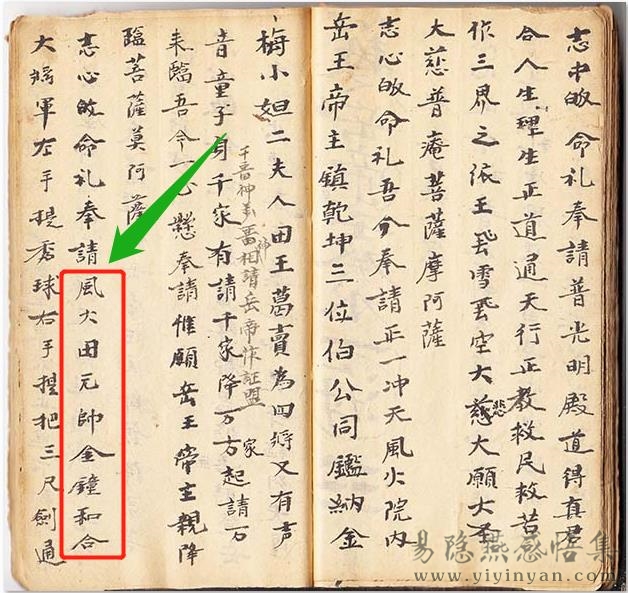 志中皈命礼奉請普光明殿道得真君
合人生理生正道通天行正教救民救苦
作三界之依王飛雪飛空大慈悲大願大圣
大慈普庵菩薩摩阿薩
志心皈命礼吾今奉請正一冲天風火院内
岳王帝主鎮乾坤三位伯公同鑑納金
梅小妲二夫人田王萬賣為四將又有声
相請岳帝作証盟
音童子身千家有請千家降万方起請万家
来臨吾今一心懸奉請惟願岳王帝主親降
臨菩薩莫阿薩
志心皈命礼奉請風火田元帥金鐘和合
大將軍左手提秀球右手提把三尺劍通
易隐燕感悟集
www.yiyinyan.com